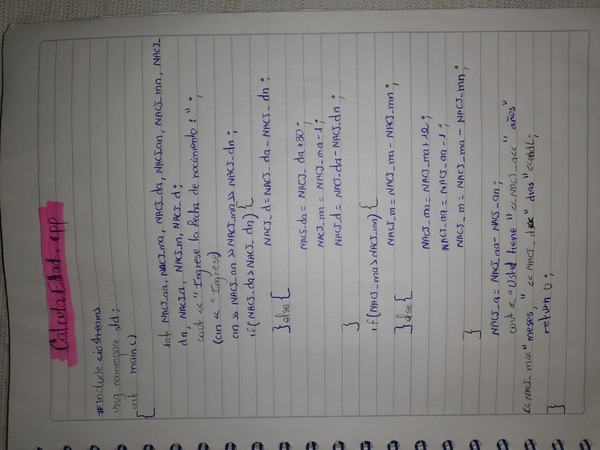 Calcula Edad. cpp
#Include <iostream>
using namespace std;
int main()
{
int NACJ_aa, NACJ_ma, NACJ_da, NACJ_an, NACJ_mn, NACJ_
dn, NACJ_a, NACJ_m, NACJ_d;
cout << "Ingrese la fecha de nacimiento: ";
(cin << "Ingrese)
cin >> NACJ_an >> NACJ_mn >> NACJ_dn;
if(NACJ_da>NACJ_dn){
NACJ_d=NACJ_da-NACJ_dn;
}else{
NACJ_da= NACJ_da+30;
NACJ_ma= NACJ_ma-1;
NACJ_d= NACJ_da-NACJ_dn;
}
if(NACJ_ma>NACJ_mn){
NACJ_m= NACJ_ma - NACJ_mn;
}else{
NACJ_ma= NACJ_ma+12;
NACJ_aa= NACJ_aa-1;
NACJ_m= NACJ_ma- NACJ_mn;
}
NACJ_a= NACJ_aa- NACJ_an;
cout << "Usted tiene "<<NACJ_a<<" años"
<<NACJ_m<<"meses, " <<NACJ_d<<" dias"<<endl;
return 0;
}